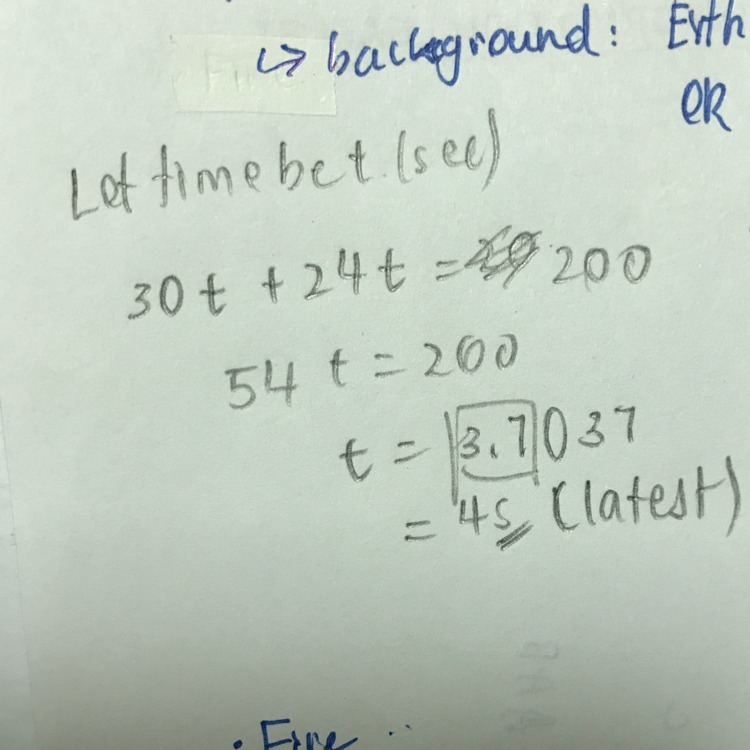 ↳ background: Exth
ER
Let time be t. (sec)
30t + 24t = 200
54 t = 200
t = 3.7037
= 4s (latest)